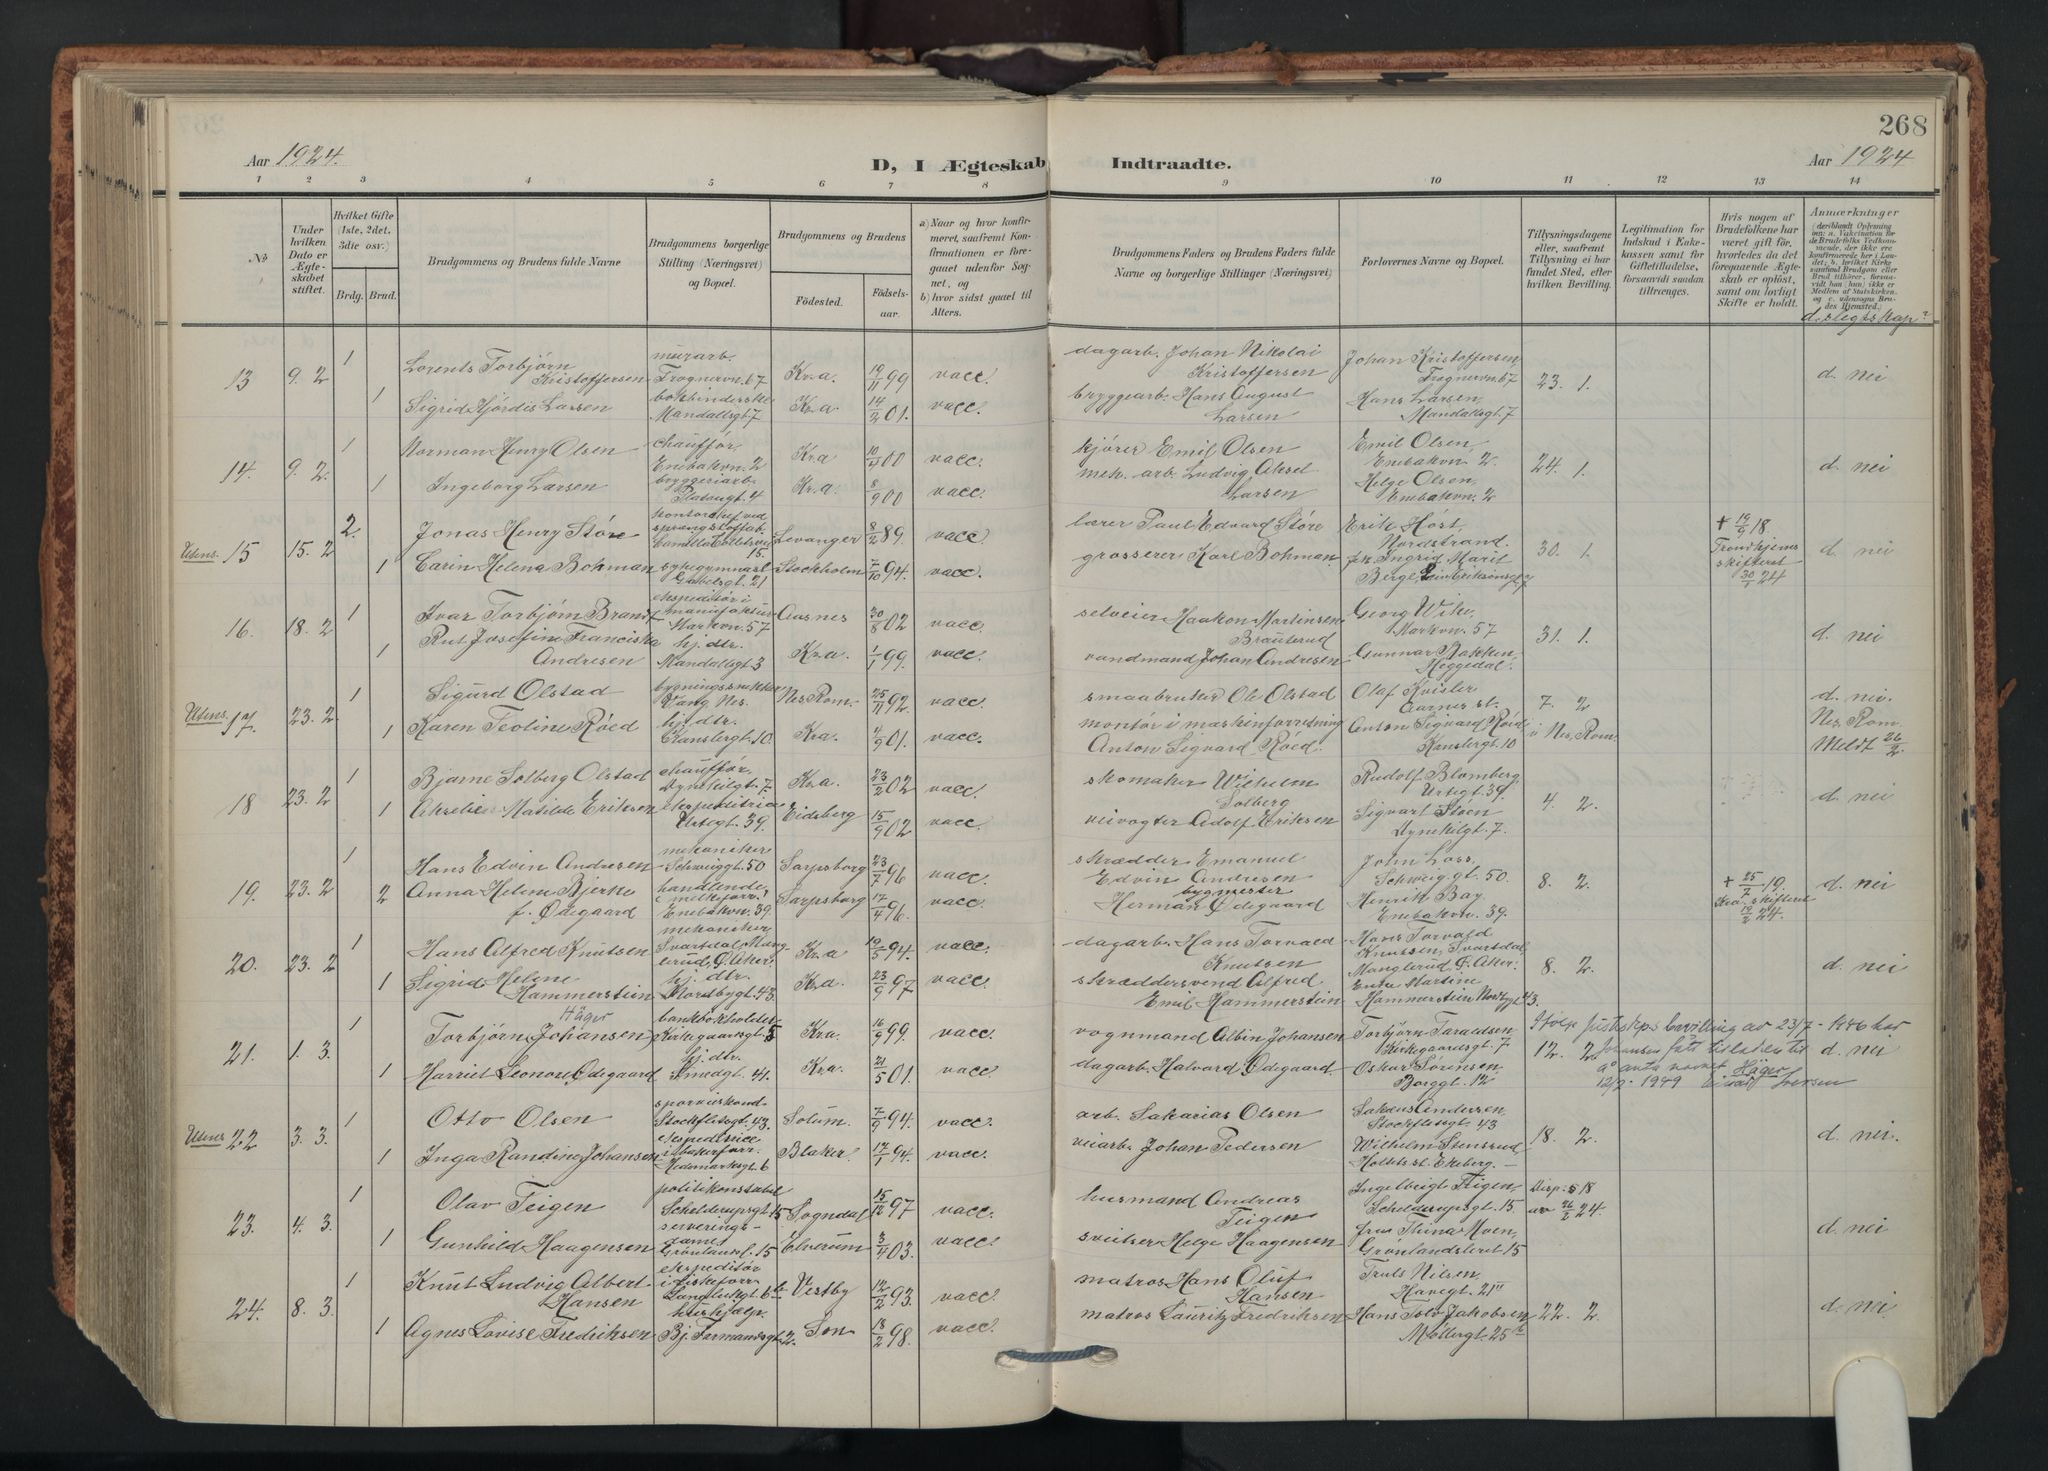 268
Aar 1924.
D, I Ægteskab Indtraadte.
Aar 1924
1 2 3 4 5 6 7 8 9 10 11 12 13 14
No
Under hvilken Dato er Ægteskabet stiftet.
Hvilket Gifte (1ste, 2det, 3die osv.)
Brdg. Brud.
Brudgommens og Brudens fulde Navne
Brudgommens borgerlige Stilling (Næringsvei) og Bopæl.
Brudgommens og Brudens
Fødested. Fødselsaar.
a) Naar og hvor konfirmeret, saafremt Konfirmationen er foregaaet udenfor Sognet, og
b) hvor sidst gaaet til Alters.
Brudgommens Faders og Brudens Faders fulde Navne og borgerlige Stillinger (Næringsvei)
Forlovernes Navne og Bopæl.
Tillysningsdagene eller, saafremt Tillysning ei har fundet Sted, efter hvilken Bevilling.
Legitimation for Indskud i Enkekassen samt for Giftetilladelse, forsaavidt saadan tiltrænges.
Hvis nogen af Brudefolkene har været gift før, hvorledes da det foregaaende Ægteskab er opløst, samt om lovligt Skifte er holdt.
Anmærkninger
(deriblandt Oplysning om: a. Vakcination for de Brudefolks Vedkommende, der ikke ere konfirmerede her i Landet; b. hvilket Kirkesamfund Brudgom eller Brud tilhører, forsaavidt han (hun) ikke er Medlem af Statskirken, og c. udensogns Brudes Hjemsted.)
d. slegtskap?
13 9. 2 1 Lorents Torbjørn Kristoffersen murarb. Frognervn. 67 Kr.a 19/11 99 vacc. dagarb. Johan Nikolai Kristoffersen Johan Kristoffersen, Frognervn. 67 23. 1. d. nei
1 Sigrid Hjördis Larsen bokbinderske Mandallsgt. 7 Kr.a 14/2 01. vacc. bryggearb. Hans August Larsen Hans Larsen, Mandallsgt. 7
14. 9. 2. 1 Norman Henry Olsen chauffør, Enebakvn. 2 Kr.a 10/4 00 vacc. kjører Emil Olsen Emil Olsen, Enebakvn. 2. 24. 1. d. nei
1 Ingeborg Larsen bryggeriarb. Platougt. 4 Kr.a. 8/9 00 vacc. mek. arb. Ludvig Aksel Larsen Helge Olsen, Enebakvn. 2
Utens. 15 15. 2 2. Jonas Henry Støre kontorchef ved sprængstoffab. Camilla Colletsvei 15. Levanger 8/2 89. vacc. lærer Paul Edvard Støre Erik Høst, Nordstrand. 30. 1. + 19/9 18 Trondhjems skifteret 30/1 24 d. nei
1 Carin Helena Bohman sykegymnast Gabelsgt. 21 Stockholm 7/10 94. vacc. grosserer Karl Bohman fr. Ingrid Marit Berg, Leiv Eriksonsgt. 7
16. 18. 2 1 Ivar Torbjørn Brandt ekspeditør i manufaktur Markvn. 57 Aasnes 30/8 02 vacc. selveier Haakon Martinsen Brauterud Georg Wike, Markvn. 57 31. 1. d. nei
1 Rut Josefine Franciska Andresen hj. dtr. Mandallsgt. 3 Kr.a. 1/1 99. vacc. vandmand Johan Andresen Gunnar Bakken, Heggedal.
Utens. 17. 23. 2 1 Sigurd Olstad bygningssnekker Vang Nes. Nes, Rom. 25/11 92. vacc. smaabruker Ole Olstad Olaf Kvisler Aarnes st. 7. 2 d. nei.
1 Karen Teoline Røed hj. dtr. Kansler gt. 10 Kr.a. 4/9 01. vacc. montør i maskinforretning Anton Sigvard Røed. Anton Sigvard Røed Kanslergt. 10 i Nes, Rom. Nes, Rom. Meldt 26/2.
18 23. 2 1 Bjarne Solberg Olstad chauffør, Dynekilgt. 7 Kr.a. 23/2 02 vacc. skomaker Wilhelm Solberg Rudolf Blomberg, Urtegt. 39. 4. 2. d. nei
1 Akselie Matilde Eriksen ekspeditrice Urtegt. 39. Eidsberg 15/9 02 vacc. veivogter Adolf Eriksen Sigvart Støen Dynekilgt. 7.
19. 23. 2 1 Hans Edvin Andresen mekaniker Schweiggt. 50 Sarpsborg 23/7 96 vacc. skrædder Emanuel Edvin Andresen John Loss, Schweiggt. 50. 8. 2. + 25/2 19. Kra. skifteret 19/2 24. d. nei
2 Anna Helene Bjerke f. Ødegaard handlende i melkeforr. Enebakvn. 39. Sarpsborg 17/4 96. vacc. bygmester Herman Ødegaard Henrik Bay, Enebakvn. 39.
20. 23. 2 1 Hans Alfred Knutsen mekaniker, Svartdal, Manglerud, Ø. Aker. Kr.a 19/5 94. vacc. dagarb. Hans Torvald Knutsen Hans Torvald Knutsen, Svartdal Manglerud Ø. Aker. 8. 2. d. nei
1 Sigrid Helene Hammerstein hj. dtr. Nordbygt. 43. Kr.a. 23/9 97 vacc. skræddersvend Alfred Emil Hammerstein Enke Martine Hammerstein Nordbygt. 43.
21. 1. 3. 1 Torbjørn Johansen) Häger bankbokholder Kirkegaardsgt. 5 Kr.a. 16/9 99. vacc. vognmand Albin Johansen Torbjørn Taraldsen, Kirkegaardsgt. 7 12. 2 d. nei
Ifølge Justisdeps bevilling av 23/7-1946 har Johansen fått tilladelse til å anta navnet Häger
12/2-1949 Einar Iversen
1 Harriet Leonore Ødegaard hj. dtr. Smedgt. 41. Kr.a 21/5 01. vacc. dagarb. Halvard Ødegaard Oskar Sørensen, Borggt. 12
Utens 22 3. 3. 1 Otto Olsen sporveiskond. Stockfletsgt. 43. Solum. 7/9 94. vacc. arb. Sakarias Olsen Sakaus Andersen, Stockfletsgt. 43 18. 2. d. nei.
1 Inga Randine Johansen ekspeditrice i bakerforr. Hedemarksgt. 6 Blaker. 17/1 94. vacc. veiarb. Johan Pedersen Wilhelm Stensrud Holtets st. Ekeberg.
23. 4. 3. 1 Olav Teigen politikonstabel Schelderupsgt. 15 Sogndal 15/12 97 vacc. husmand Andreas Teigen Ingelbrigt Teigen, Schelderupsgt. 15. Disp: § 18 av 26/2 24. d. nei
1 Gunhild Haagensen serveringsdame, Grønlandsl. 15 Elverum 3/4 03. vacc. sveitser Helge Haagensen frue Thina Moen, Grønlandsleret 15
24. 8. 3. 1 Knut Ludvig Albert Hansen ekspeditør i fiskeforr. Langleikgt. 6 b Vestby 12/2 93. vacc. matros Hans Oluf Hansen Truls Nilsen, Havegt. 21 II 22. 2. d. nei.
1 Agnes Lovise Fredriksen hushjælp. Bj. Farmandsgt. 2. Son 18/2 98. vacc. matros Lauritz Fredriksen Hans Tolv Jakobsen Møllergt. 25 b